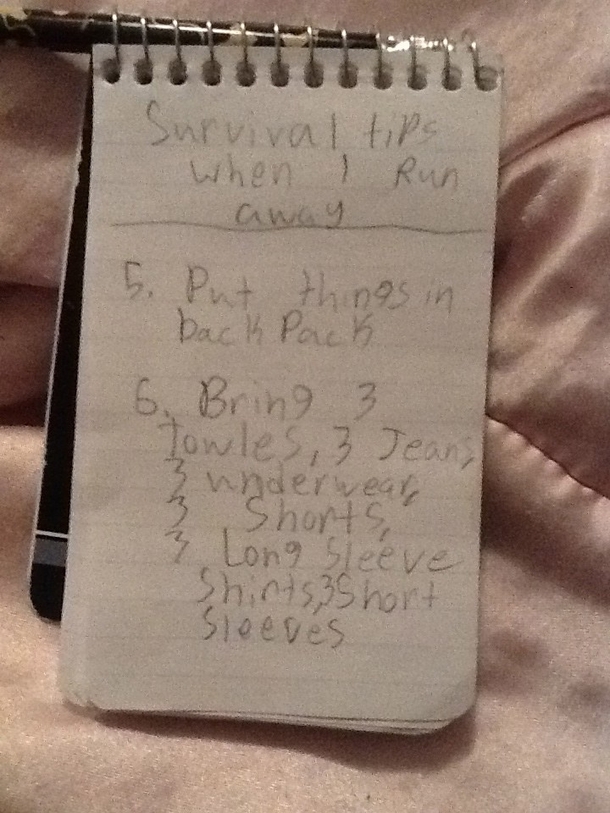 Survival tips
when I Run
away
5. Put things in
back Pack
6. Bring 3
Towles, 3 Jeans,
3 underwear,
3 Shorts,
3 Long Sleeve
Shirts,3Short
Sleeves